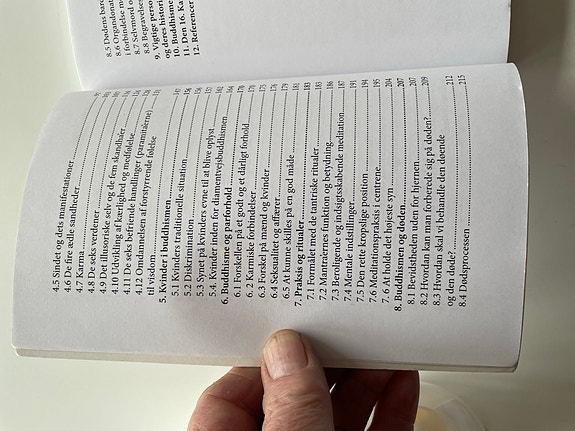 4.5 Sindet og dets manifestationer
4.6 De fire ædle sandheder
4.7 Karma
4.8 De seks verdener
4.9 Det illusoriske selv og de fem skandhaer
4.10 Udvikling af kærlighed og medfølelse
4.11 De seks befriende handlinger (paramitaerne)
4.12 Omdannelsen af forstyrrende følelse
til visdom
5. Kvinder i buddhismen 147
5.1 Kvinders traditionelle situation
5.2 Diskrimination
5.3 Synet på kvinders evne til at blive oplyst
5.4. Kvinder inden for diamantvejsbuddhismen
6. Buddhisme og parforhold
6.1 Forskellen på et godt og et dårligt forhold
6. 2 Karmiske forbindelser
6.3 Forskel på mænd og kvinder
6.4 Seksualitet og affærer 179
6.5 At kunne skilles på en god måde
7. Praksis og ritualer 183
7.1 Formålet med de tantriske ritualer 183
7.2 Mantraernes funktion og betydning 186
7.3 Beroligende og indsigtsskabende meditation 187
7.4 Mentale indstillinger 191
7.5 Den rette kropslige position 194
7.6 Meditationspraksis i centrene 195
7. 6 At holde det højeste syn 204
8. Buddhismen og døden 207
8.1 Bevidstheden uden for hjernen 207
8.2 Hvordan kan man forberede sig på døden? 209
8.3 Hvordan skal vi behandle den døende
og den døde? 212
8.4 Dødsprocessen 215
8.5 Dødens bard
8.6 Organdonat
i forbindelse m
8.7 Selvmord o
8.8 Begravelses
9. Vigtige perso
og deres histori
10. Buddhisme
11. Den 16. Ka
12. Referencer